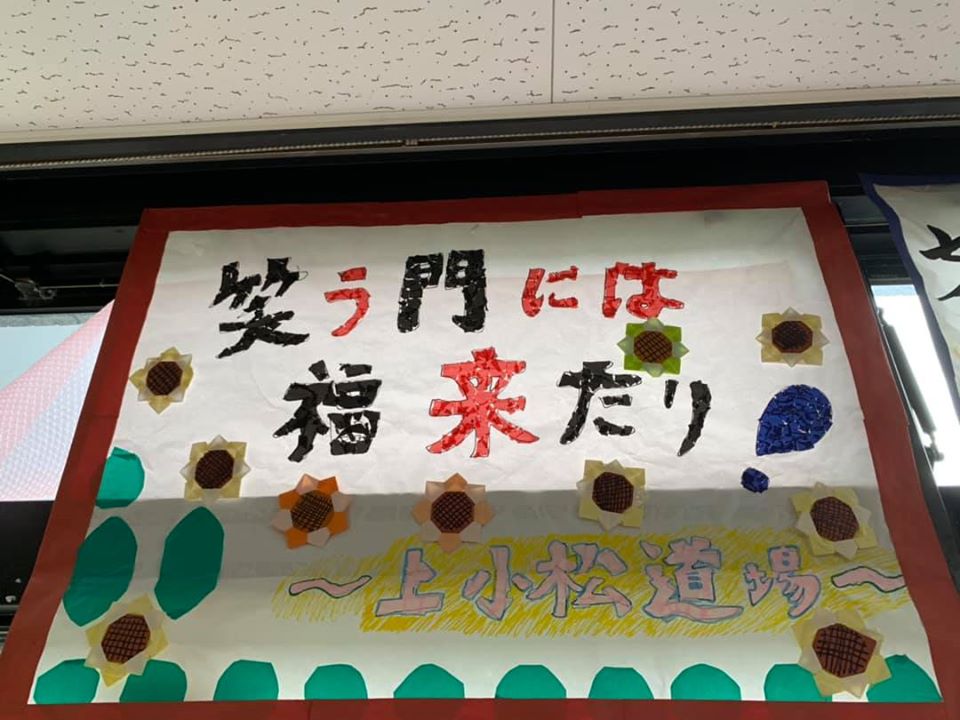 笑う門には
福来たり!
~上小松道場~